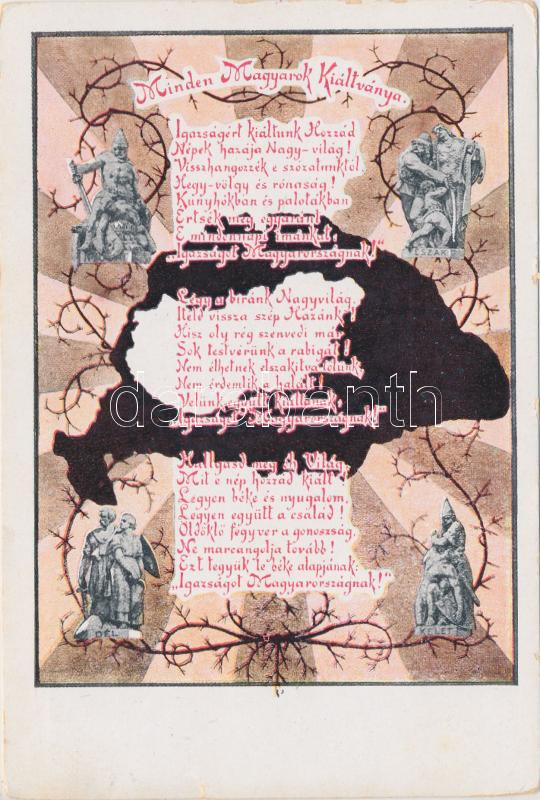 Minden Magyarok Kiáltványa.
Igazságért kiáltunk Hozzád
Népek hazája Nagy-világ!
Visszhangozzék e szózatunktól,
Hegy-völgy és rónaság!
Kúnyhókban és palotákban
Értsék meg egyaránt
E mindennapi imánkat,
„Igazságot Magyarországnak!"
Légy a bíránk Nagyvilág,
Itéld vissza szép Hazánk!
Hisz oly rég szenvedi már
Sok testvérünk a rabigát!
Nem élhetnek elszakítva tőlünk,
Nem érdemlik a halált!
Velünk együtt kiáltanak,
„Igazságot Magyarországnak!"
Hallgasd meg óh Világ,
Mit e nép hozzád kiált!
Legyen béke és nyugalom,
Legyen együtt a család!
Öldöklő fegyver a gonoszság,
Ne marcangolja tovább!
Ezt tegyük le béke alapjának:
„Igazságot Magyarországnak!"
ÉSZAK
DÉL
KELET
darabanth